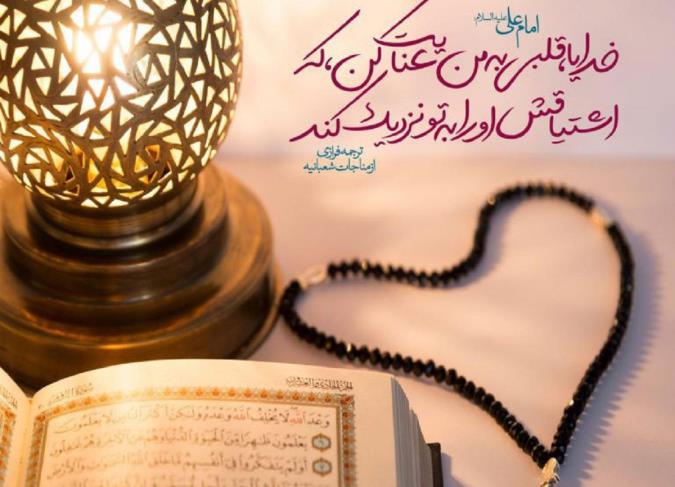 امام علی علیه السلام:
خدایا، قلبی به من عنایت کن، که
اشتیاقش او را به تو نزدیک کند
ترجمه فرازی
از مناجات شعبانیه
الجزء الحادي والعشرون
سورة الروم
وَعْدَ اللَّهِ لَا يُخْلِفُ اللَّهُ وَعْدَهُ وَلَٰكِنَّ أَكْثَرَ النَّاسِ لَا يَعْلَمُونَ
يَعْلَمُونَ ظَاهِرًا مِنَ الْحَيَوٰةِ الدُّنْيَا وَهُمْ عَنِ الْآخِرَةِ هُمْ غَافِلُونَ
أَوَلَمْ يَتَفَكَّرُوا فِي أَنْفُسِهِمْ مَا خَلَقَ اللَّهُ السَّمَٰوَاتِ وَالْأَرْضَ